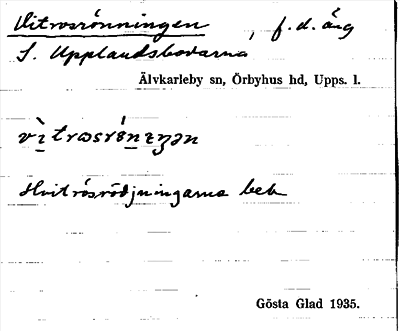 Vitrosrönningen, f.d. äng
S. Upplandsbodarna
Älvkarleby sn, Örbyhus hd, Upps. l.
Hvitrösrödjningarna bek
Gösta Glad 1935.